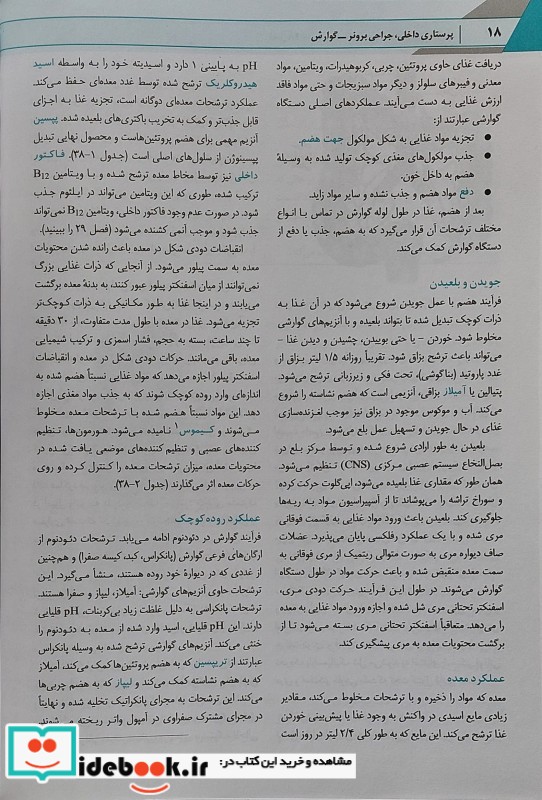 ۱۸ پرستاری داخلی، جراحی برونر ــ گوارش
دریافت غذای حاوی پروتئین، چربی، کربوهیدرات، ویتامین، مواد
معدنی و فیبرهای سلولز و دیگر مواد سبزیجات و حتی مواد فاقد
ارزش غذایی به دست می‌آیند. عملکردهای اصلی دستگاه
گوارشی عبارتند از:
• تجزیه مواد غذایی به شکل مولکول جهت هضم.
• جذب مولکول‌های مغذی کوچک تولید شده به وسیلهٔ
هضم به داخل خون.
• دفع مواد هضم و جذب نشده و سایر مواد زاید.
بعد از هضم، غذا در طول لوله گوارش در تماس با انواع
مختلف ترشحات آن قرار می‌گیرد که به هضم، جذب یا دفع از
دستگاه گوارش کمک می‌کند.
جویدن و بلعیدن
فرآیند هضم با عمل جویدن شروع می‌شود که در آن غذا به
ذرات کوچک تبدیل شده تا بتواند بلعیده و با آنزیم‌های گوارشی
مخلوط شود. خوردن - یا حتی بوییدن، چشیدن و دیدن غذا -
می‌تواند باعث ترشح بزاق شود. تقریباً روزانه ۱/۵ لیتر بزاق از
غدد پاروتید (بناگوشی)، تحت فکی و زیرزبانی ترشح می‌شود.
پتیالین یا آمیلاز بزاقی، آنزیمی است که هضم نشاسته را شروع
می‌کند. آب و موکوس موجود در بزاق نیز موجب لغزنده‌سازی
غذای در حال جویدن و تسهیل عمل بلع می‌شود.
بلعیدن به طور ارادی شروع شده و توسط مرکز بلع در
بصل‌النخاع سیستم عصبی مرکزی (CNS) تنظیم می‌شود.
همان طور که مقداری غذا بلعیده می‌شود، اپی‌گلوت حرکت کرده
و سوراخ تراشه را می‌پوشاند تا از آسپیراسیون مواد به ریه‌ها
جلوگیری کند. بلعیدن باعث ورود مواد غذایی به قسمت فوقانی
مری شده و با یک عملکرد رفلکسی پایان می‌پذیرد. عضلات
صاف دیواره مری به صورت متوالی ریتمیک از مری فوقانی به
سمت معده منقبض شده و باعث حرکت مواد در طول دستگاه
گوارش می‌شوند. در طول این فرآیند حرکت دودی مری،
اسفنکتر تحتانی مری شل شده و اجازه ورود مواد غذایی به معده
را می‌دهد. متعاقباً اسفنکتر تحتانی مری بسته می‌شود تا از
برگشت محتویات معده به مری پیشگیری کند.
عملکرد معده
معده که مواد را ذخیره و با ترشحات مخلوط می‌کند، مقادیر
زیادی مایع اسیدی در واکنش به وجود غذا یا پیش‌بینی خوردن
غذا ترشح می‌کند. این مایع که به طور کلی ۲/۴ لیتر در روز است
pH به پایینی ۱ دارد و اسیدیته خود را به واسطه اسید
هیدروکلریک ترشح شده توسط غدد معده‌ای حفظ می‌کند.
عملکرد ترشحات معده‌ای دوگانه است، تجزیه غذا به اجزای
قابل جذب‌تر و کمک به تخریب باکتری‌های بلعیده شده. پپسین
آنزیم مهمی برای هضم پروتئین‌هاست و محصول نهایی تبدیل
پپسینوژن از سلول‌های اصلی است (جدول ۱-۳۸). فاکتور
داخلی نیز توسط مخاط معده ترشح شده و با ویتامین B12
ترکیب شده، طوری که این ویتامین می‌تواند در ایلئوم جذب
شود. در صورت عدم وجود فاکتور داخلی، ویتامین B12 نمی‌تواند
جذب شود و موجب آنمی کشنده می‌شود (فصل ۲۹ را ببینید).
انقباضات دودی شکل در معده باعث رانده شدن محتویات
معده به سمت پیلور می‌شود. از آنجایی که ذرات غذایی بزرگ
نمی‌توانند از میان اسفنکتر پیلور عبور کنند، به بدنهٔ معده برگشت
می‌یابند و در اینجا غذا به طور مکانیکی به ذرات کوچک‌تر
تجزیه می‌شود. غذا در معده با طول مدت متفاوت، از ۳۰ دقیقه
تا چند ساعت، بسته به حجم، فشار اسمزی و ترکیب شیمیایی
معده، باقی می‌مانند. حرکات دودی شکل در معده و انقباضات
اسفنکتر پیلور اجازه می‌دهد که مواد غذایی نسبتاً هضم شده به
اندازه‌ای وارد روده کوچک شوند که به جذب مواد مغذی اجازه
دهد. این مواد نسبتاً هضم شده با ترشحات معده مخلوط
می‌شوند و کیموس۱ نامیده می‌شود. هورمون‌ها، تنظیم
کننده‌های عصبی و تنظیم کننده‌های موضعی یافت شده در
محتویات معده، میزان ترشحات معده را کنترل کرده و روی
حرکات معده اثر می‌گذارند (جدول ۲-۳۸).
عملکرد روده کوچک
فرآیند گوارش در دئودنوم ادامه می‌یابد. ترشحات دئودنوم از
ارگان‌های فرعی گوارش (پانکراس، کبد، کیسه صفرا) و هم‌چنین
از غددی که در دیوارهٔ خود روده هستند، منشأ می‌گیرد. این
ترشحات حاوی آنزیم‌های گوارشی: آمیلاز، لیپاز و صفرا هستند.
ترشحات پانکراسی به دلیل غلظت زیاد بی‌کربنات، pH قلیایی
دارند. این pH قلیایی، اسید وارد شده از معده به دئودنوم را
خنثی می‌کند. آنزیم‌های گوارشی ترشح شده به وسیله پانکراس
عبارتند از تریپسین که به هضم پروتئین‌ها کمک می‌کند، آمیلاز
که به هضم نشاسته کمک می‌کند و لیپاز که به هضم چربی‌ها
کمک می‌کند. این ترشحات به مجرای پانکراتیک تخلیه شده و نهایتاً
در مجرای مشترک صفراوی در آمپول واتر ریخته می‌شوند.
iidebook.ir
مشاهده و خرید این کتاب در: